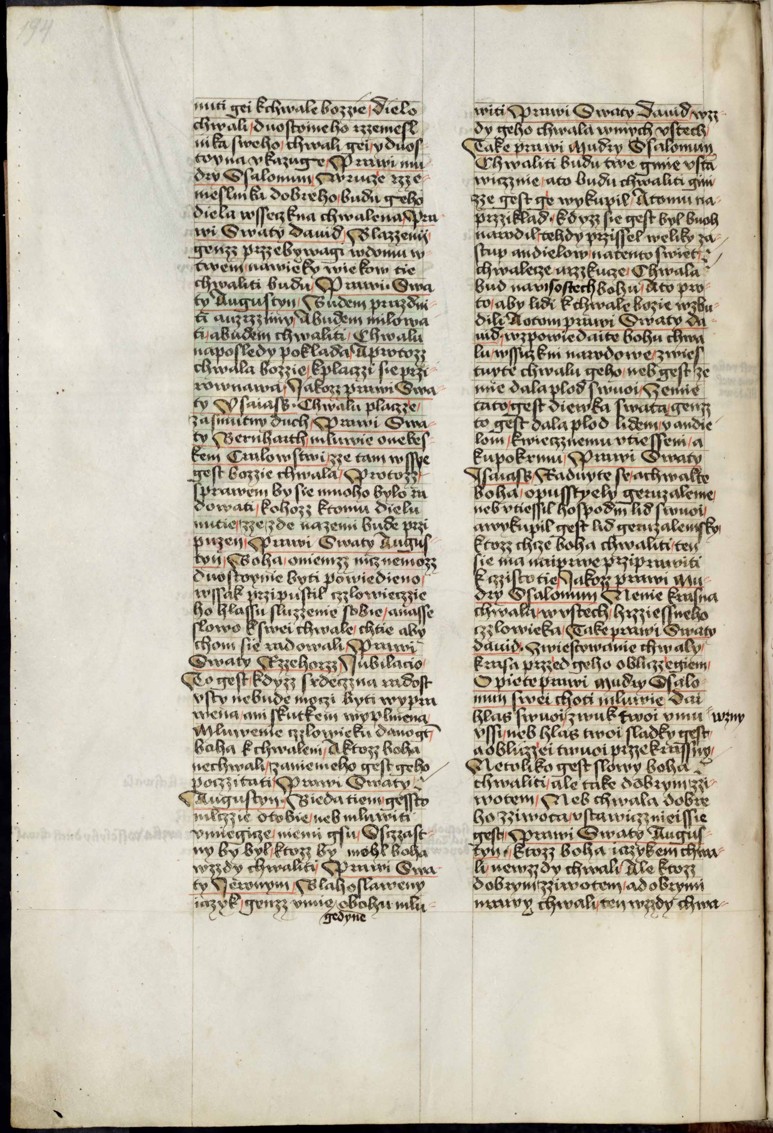 194
nuti gei kchwale bozzie / Dielo
chwali / duostoineho rzzemesl
nika sweho / chwali gei / y duos
toyna vkazuge / Prawi mu
dry Ssalomun / Wrucze rzze
meslniku dobreho / budu geho
diela wsseczkna chwalena / Pra
wi Swaty dauid / Blazzenij
genzz przzebywagi wdomu w
twem / nawieky wiekow tie
chwaliti budu / Prawi Swa
ty Augustyn / Budem prazdni
ti auzrzimy / Abudem milowa
ti / abudem chwaliti / Chwalu
naposledy poklada / Aprotozz
chwala bozzie / kplaczi sie przi
rownawa / Jakozz prawi Swa
ty Ysaiass / Chwalu placze /
zasmutny duch / Prawi Swa
ty Bernharth mluwie onebes
kem Cralowstwi / zze tam wssye
gest bozzie chwala / Protozz
sprawem by sie mnoho bylo ra
dowati / kohozz ktomu dielu
nutie / zze zde nazemi bude przi
puzen / Prawi Swaty Augus
tyn / Boha / oniemzz nicznemozz
duostoynie byti powiedieno /
wssak przipustil czlowieczzie
ho hlassu sluzzenie sobie / anasse
slowo kswei chwale / chtie aby
chom sie radowali / Prawi
Swaty Rzzehorzz / Jubilacio /
To gest kdyzz srdeczna radost
vsty nebude moczi byti wypra
wena ani skutkem wyplniena
Mluwenie czlowieku dano gest
boha kchwalem / Aktozz boha
nechwali / zaniemeho gest geho
poczzitati / Prawi Swaty
Augustyn / Bieda tiem / gessto
mlczzie otobie / neb mluwiti
vmiegicze / niemi gsu / Ssczzast
ny by byl / ktozz by mohl boha
wzzdy chwaliti / Prawi Swa
ty Jeronym / Blahoslaweny
iazyk / genzz vmie / obohu mlu
gedyne
witi Prawi Swaty dauid / wzz
dy geho chwala wmych vstech /
Take prawi Mudry Ssalomun
Chwaliti budu twe gmie vsta
wicznie / ato budu chwaliti gm
zze gest ge wykupil / Atomu na
przziklad / kdyzz sie gest byl buoh
narodil / tehdy przissel weliky za
stup andielow / natento swiet /
chwalecze arzkucze / Chwala
bud nawysostech bohu / Ato pro
to / aby lidi kchwale bozie wzbu
dili / Aotom prawi Swaty da
uid / wzpowiedaite bohu chwa
lu / wssiczkni narodowe / zwies
tuyte chwalu geho / neb gest ze
mie dala plod swuoi / Zemie
tato / gest diewka swata / genzz
to gest dala plod lidem / y andie
lom / kwiecznemu vtiessem / a
kupokrmu / Prawi Swaty
Isaiass / Raduyte se / achwalte
boha / opusstyely geruzaleme /
neb vtiessil hospodin lid swuoi /
awykupil gest lid geruzalemsky /
ktozz chcze boha chwaliti / ten
sie ma naiprwe przzipraviti
kczistotie / Jakozz prawi Mu
dry Ssalomun / Nenie krasna
chwala / wvstech / hrzziessneho
czlowieka / Take prawi Swaty
dauid / Zwiestowanie chwaly /
krasa przzed geho obliczzegiem
O piete prawi Mudry Ssalo
mun swei choti mluwie / Dai
hlas swuoi / zwuk twoi vmu wzny
vssi / neb hlas twoi sladky gest
aoblizzei twuoi przzekrassny /
Netoliko gest slowy boha
chwaliti / ale take dobrym zzi
wotem / Neb chwala dobre
ho zziwota / vstawiczznieissie
gest / Prawi Swaty Augus
tyn / ktozz boha iazykem chwa
li newzzdy chwali / Ale ktozz
dobrym zziwotem / adobrymi
mrawy chwali / ten wzzdy chwa